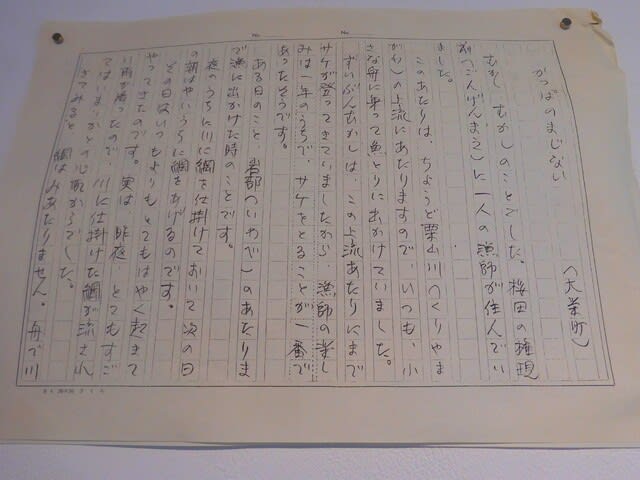 No.
No.
かっぱのまじない
(大栄町)
むかし むかしのことでした。桜田の権現
前(ごんげんまえ)に一人の漁師が住んでい
ました。
このあたりは、ちょうど栗山川(くりやま
がわ)の上流にあたりますので、いつも、小
さな舟に乗って魚とりに出かけていました。
ずいぶんむかしは、この上流あたりにまで
サケが登ってきていましたから、漁師の楽し
みは一年のうちで、サケをとることが一番で
あったそうです。
ある日のこと、岩部(いわべ)のあたりま
で漁に出かけた時のことです。
夜のうちに川に網を仕掛けておいて次の日
の朝はやいうちに網をあげるのです。
その日はいつもよりもとてもはやく起きて
やってきたのです。実は、昨夜、とてもすご
い雨が降ったので、川に仕掛けた網が流され
てはいまいかとの心配からでした。
きてみると、網はみあたりません。舟で川